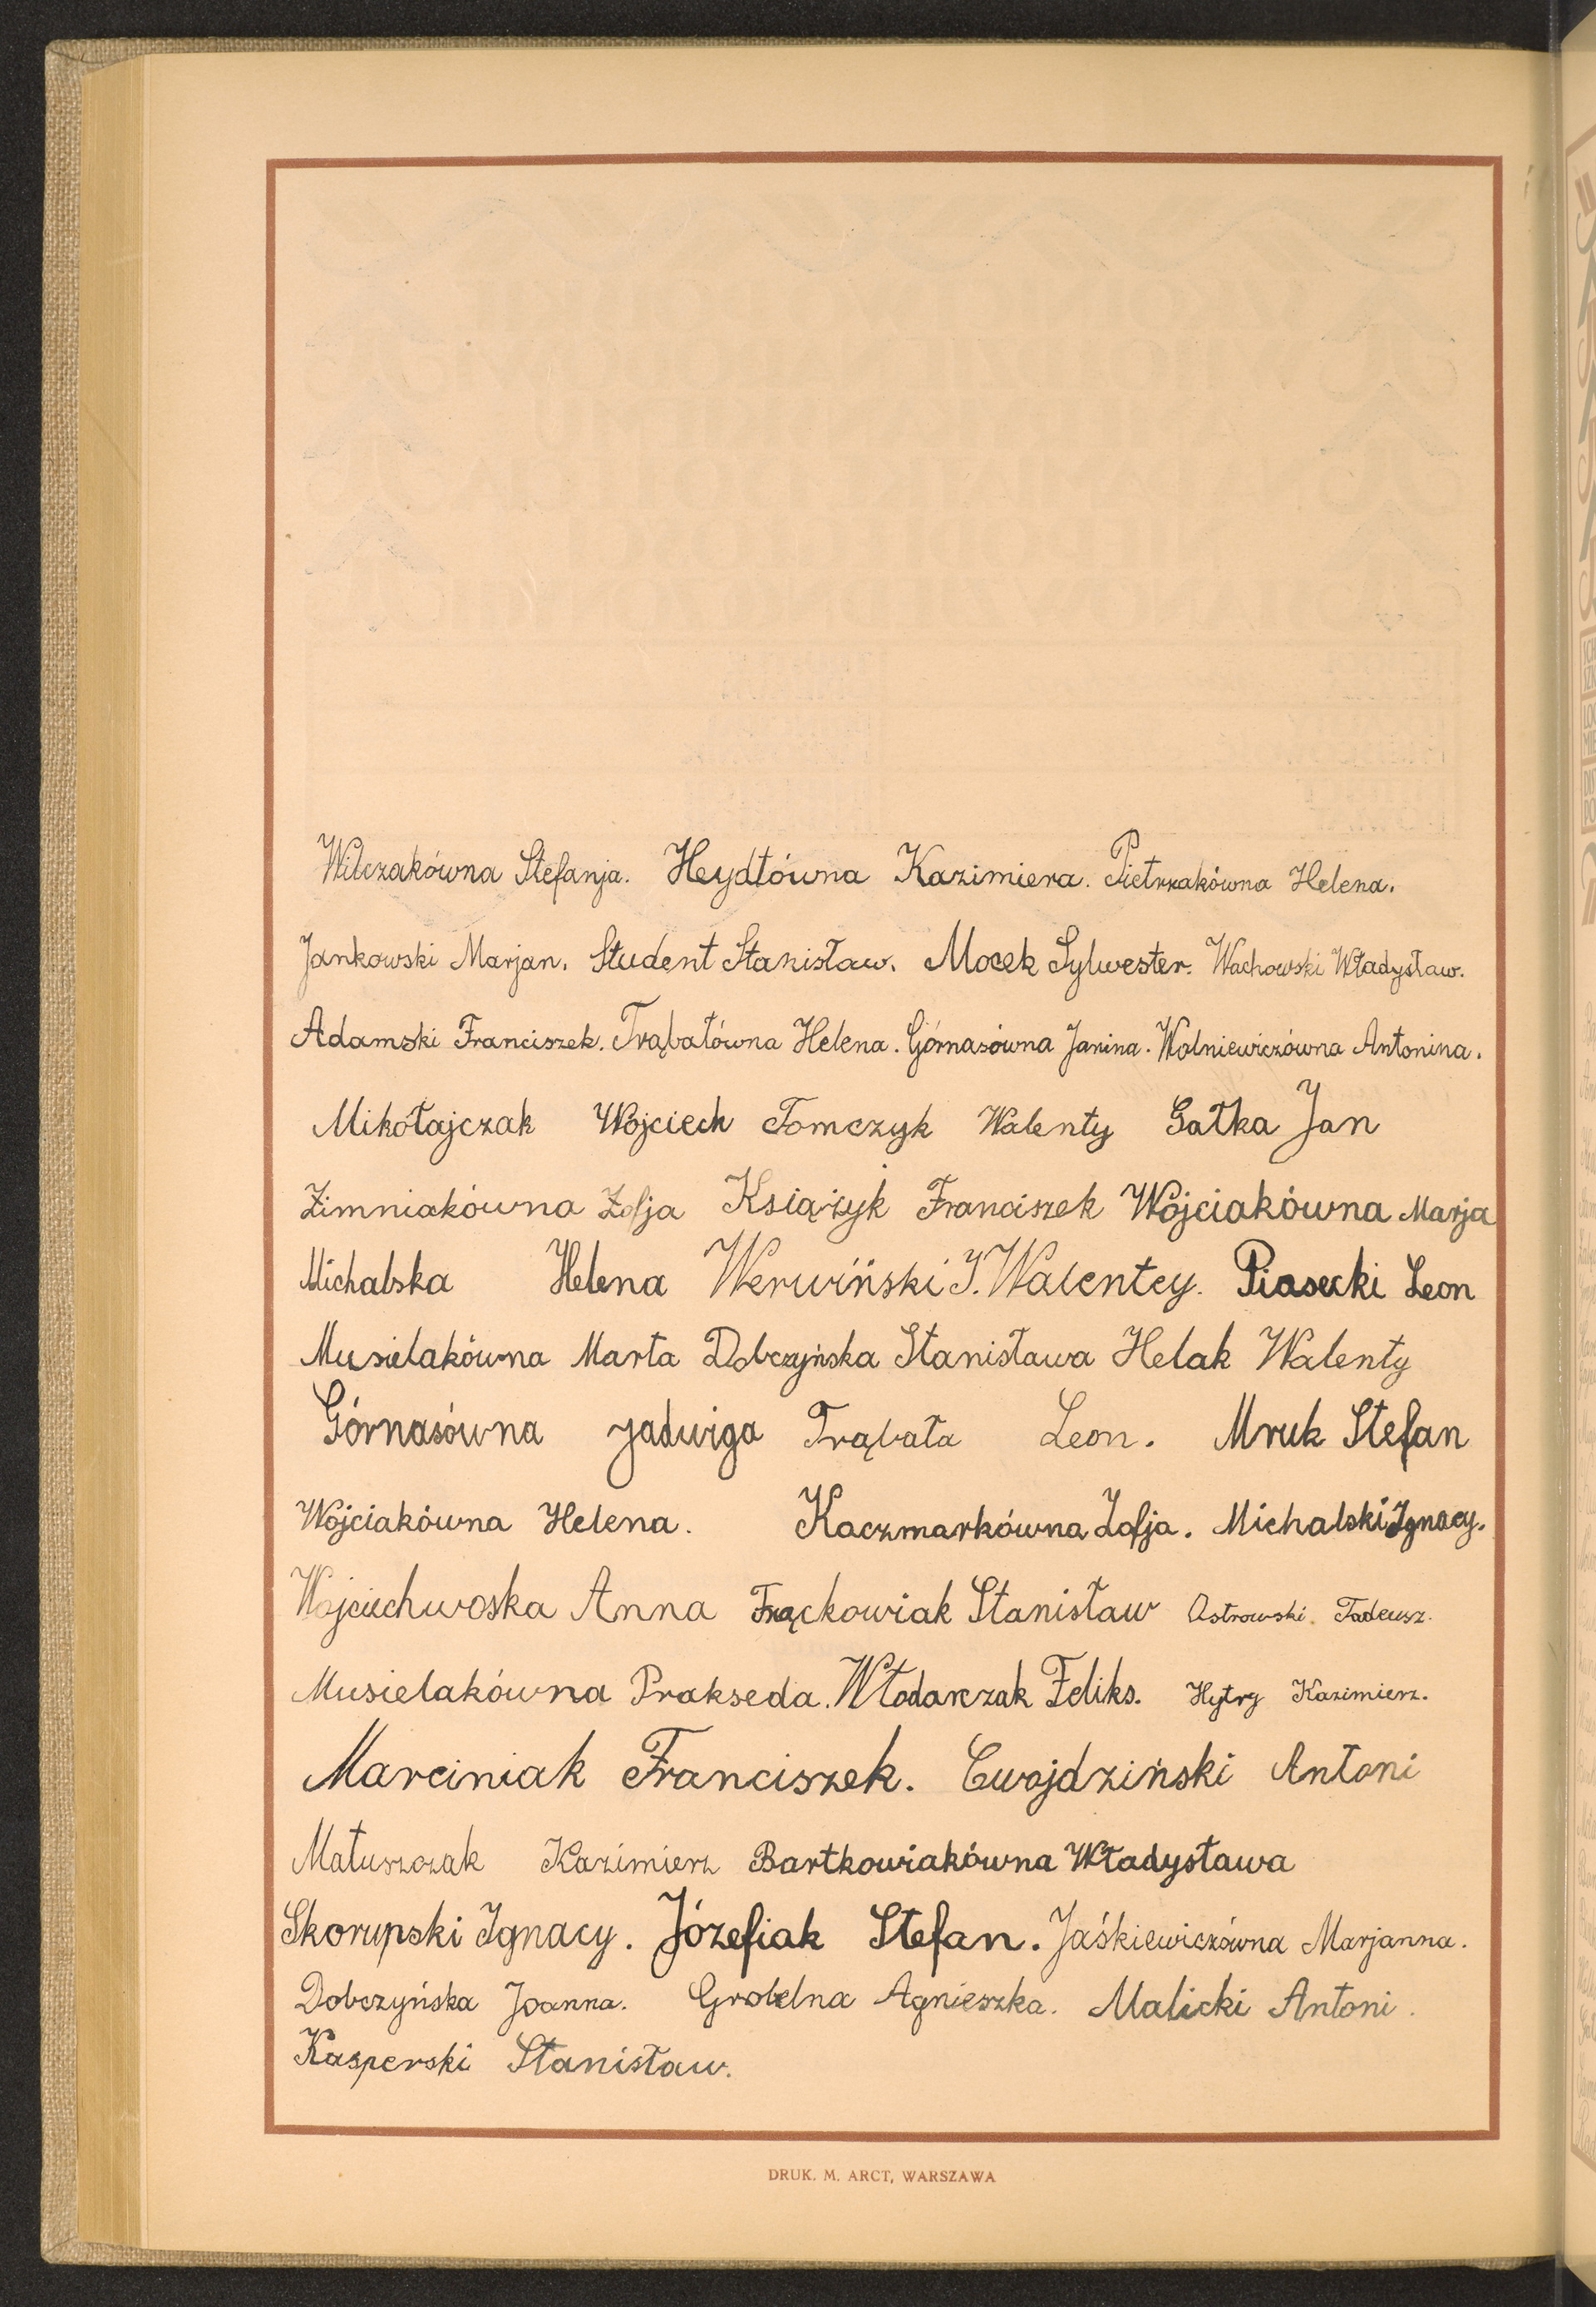 Wilczakówna Stefanja. Heydtówna Kazimiera. Pietrzakówna Helena.
Jankowski Marjan. Student Stanisław. Mocek Sylwester. Wachowski Władysław.
Adamski Franciszek. Trąbatówna Helena. Górnasówna Janina. Wolniewiczówna Antonina.
Mikołajczak Wojciech Tomczyk Walenty Gałka Jan
Zimniakówna Zofja Książyk Franciszek Wojciakówna Marja
Michalska Helena Werwiński J. Walentey. Piasecki Leon
Musielakówna Marta Dobczyńska Stanisława Helak Walenty
Górnasówna Jadwiga Trąbała Leon. Mruk Stefan
Wojciakówna Helena. Kaczmarkówna Zofja. Michalski Ignacy.
Wojciechwoska Anna Frąckowiak Stanisław Ostrowski Tadeusz.
Musielakówna Prakseda. Włodarczak Feliks. Hytry Kazimierz.
Marciniak Franciszek. Cwojdziński Antoni
Matuszczak Kazimierz Bartkowiakówna Władysława
Skorupski Ignacy. Józefiak Stefan. Jaśkiewiczówna Marjanna.
Dobczyńska Joanna. Grobelna Agnieszka. Malicki Antoni.
Kasperski Stanisław.
DRUK. M. ARCT, WARSZAWA